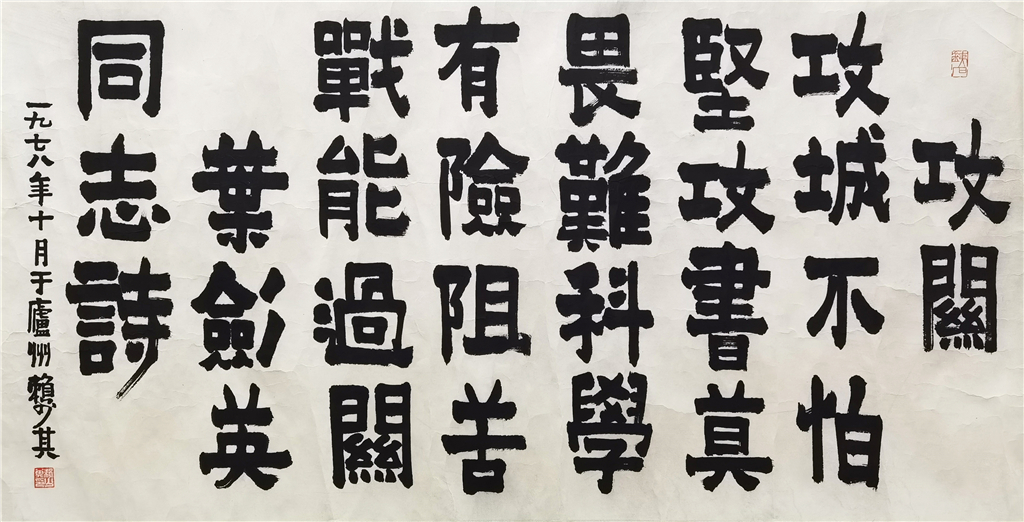 攻關
攻城不怕
堅攻書莫
畏難科學
有險阻苦
戰能過關
葉劍英
同志詩
一九七八年十月于廬州賴少其